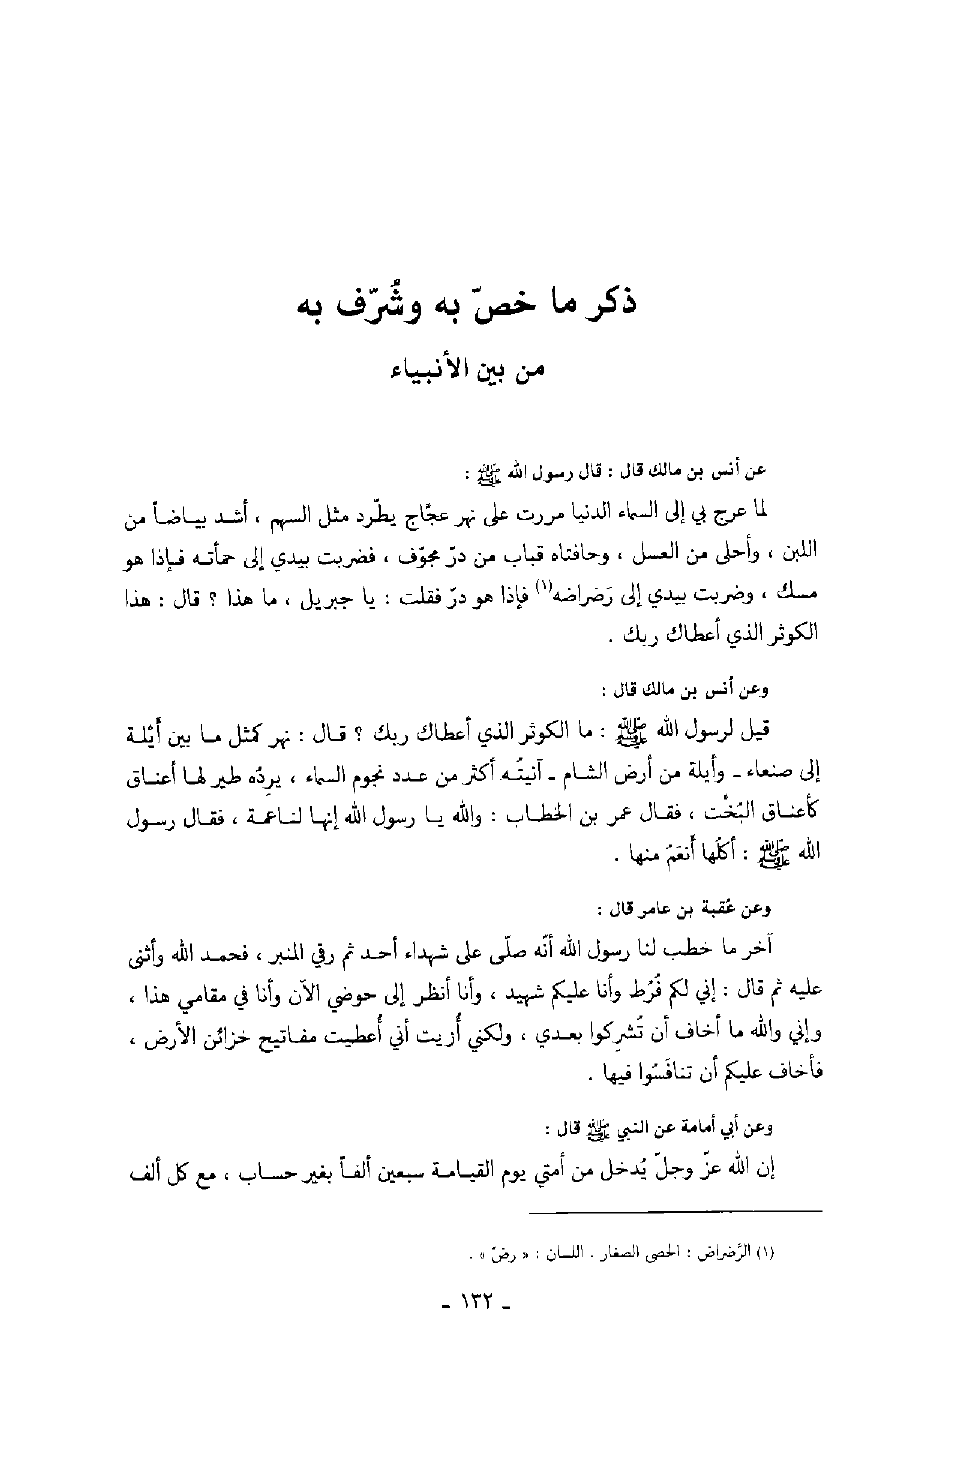 ذكر ما خصّ به وشُرّف به
من بين الأنبياء
عن أنس بن مالك قال : قال رسول الله ﷺ :
لما عرج بي إلى السماء الدنيا مررت على نهر عجّاج يطّرد مثل السهم ، أشد بياضاً من
اللبن ، وأحلى من العسل ، وحافتاه قباب من درّ مجوّف ، فضربت بيدي إلى حمأته فإذا هو
مسك ، وضربت بيدي إلى رَضراضه(١) فإذا هو درّ فقلت : يا جبريل ، ما هذا ؟ قال : هذا
الكوثر الذي أعطاك ربك .
وعن أنس بن مالك قال :
قيل لرسول الله ﷺ : ما الكوثر الذي أعطاك ربك ؟ قال : نهر كمثل ما بين أَيْلة
إلى صنعاء ـ وأيلة من أرض الشام ـ آنيتُه أكثر من عدد نجوم السماء ، يرِدُه طير لها أعناق
كأعناق البُخْت ، فقال عمر بن الخطاب : والله يا رسول الله إنها لناعمة ، فقال رسول
الله ﷺ : أكلُها أَنعَمُ منها .
وعن عُقبة بن عامر قال :
آخر ما خطب لنا رسول الله أنّه صلّى على شهداء أحد ثم رقي المنبر ، فحمد الله وأثنى
عليه ثم قال : إني لكم فَرَط وأنا عليكم شهيد ، وأنا أنظر إلى حوضي الآن وأنا في مقامي هذا ،
وإني والله ما أخاف أن تُشرِكوا بعدي ، ولكني أُريت أني أُعطيت مفاتيح خزائن الأرض ،
فأخاف عليكم أن تنافَسُوا فيها .
وعن أبي أمامة عن النبي ﷺ قال :
إن الله عزّ وجلّ يُدخل من أمتي يوم القيامة سبعين ألفاً بغير حساب ، مع كل ألف
(١) الرَّضراض : الحصى الصغار . اللسان : « رضّ » .
ـ ١٣٢ ـ